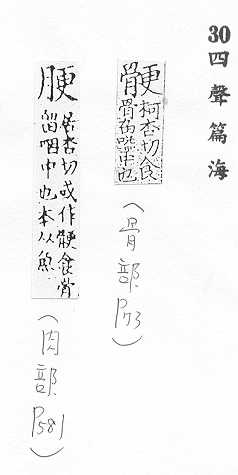 30 四聲篇海
骾 柯杏切食
骨在咽中也
(骨部 P73)
腰 居杏切或作骾食骨
留咽中也本从魚
(肉部 P581)